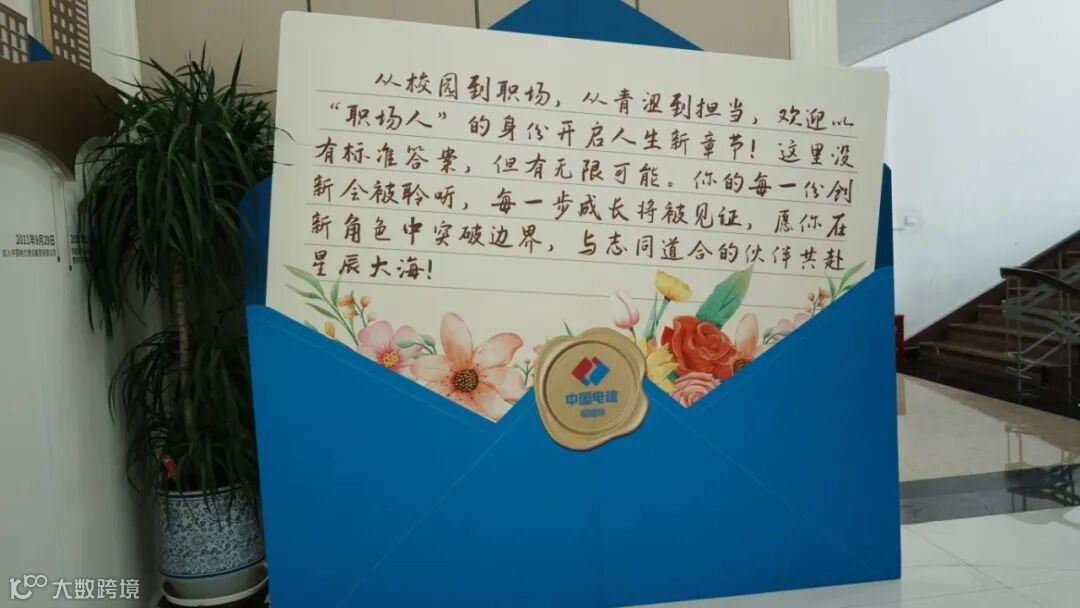 从校园到职场，从青涩到担当，欢迎以
“职场人”的身份开启人生新章节！这里没
有标准答案，但有无限可能。你的每一份创
新会被聆听，每一步成长将被见证，愿你在
新角色中突破边界，与志同道合的伙伴共赴
星辰大海！
中国电建
2011年9月29日
大数跨境